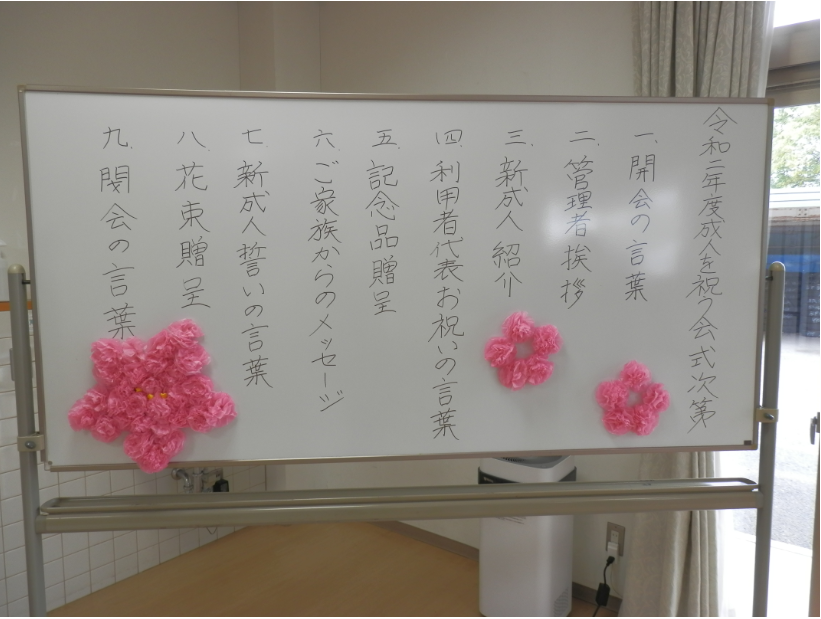 令和二年度成人を祝う会式次第
一.開会の言葉
二.管理者挨拶
三.新成人紹介
四.利用者代表お祝いの言葉
五.記念品贈呈
六.ご家族からのメッセージ
七.新成人誓いの言葉
八.花束贈呈
九.閉会の言葉